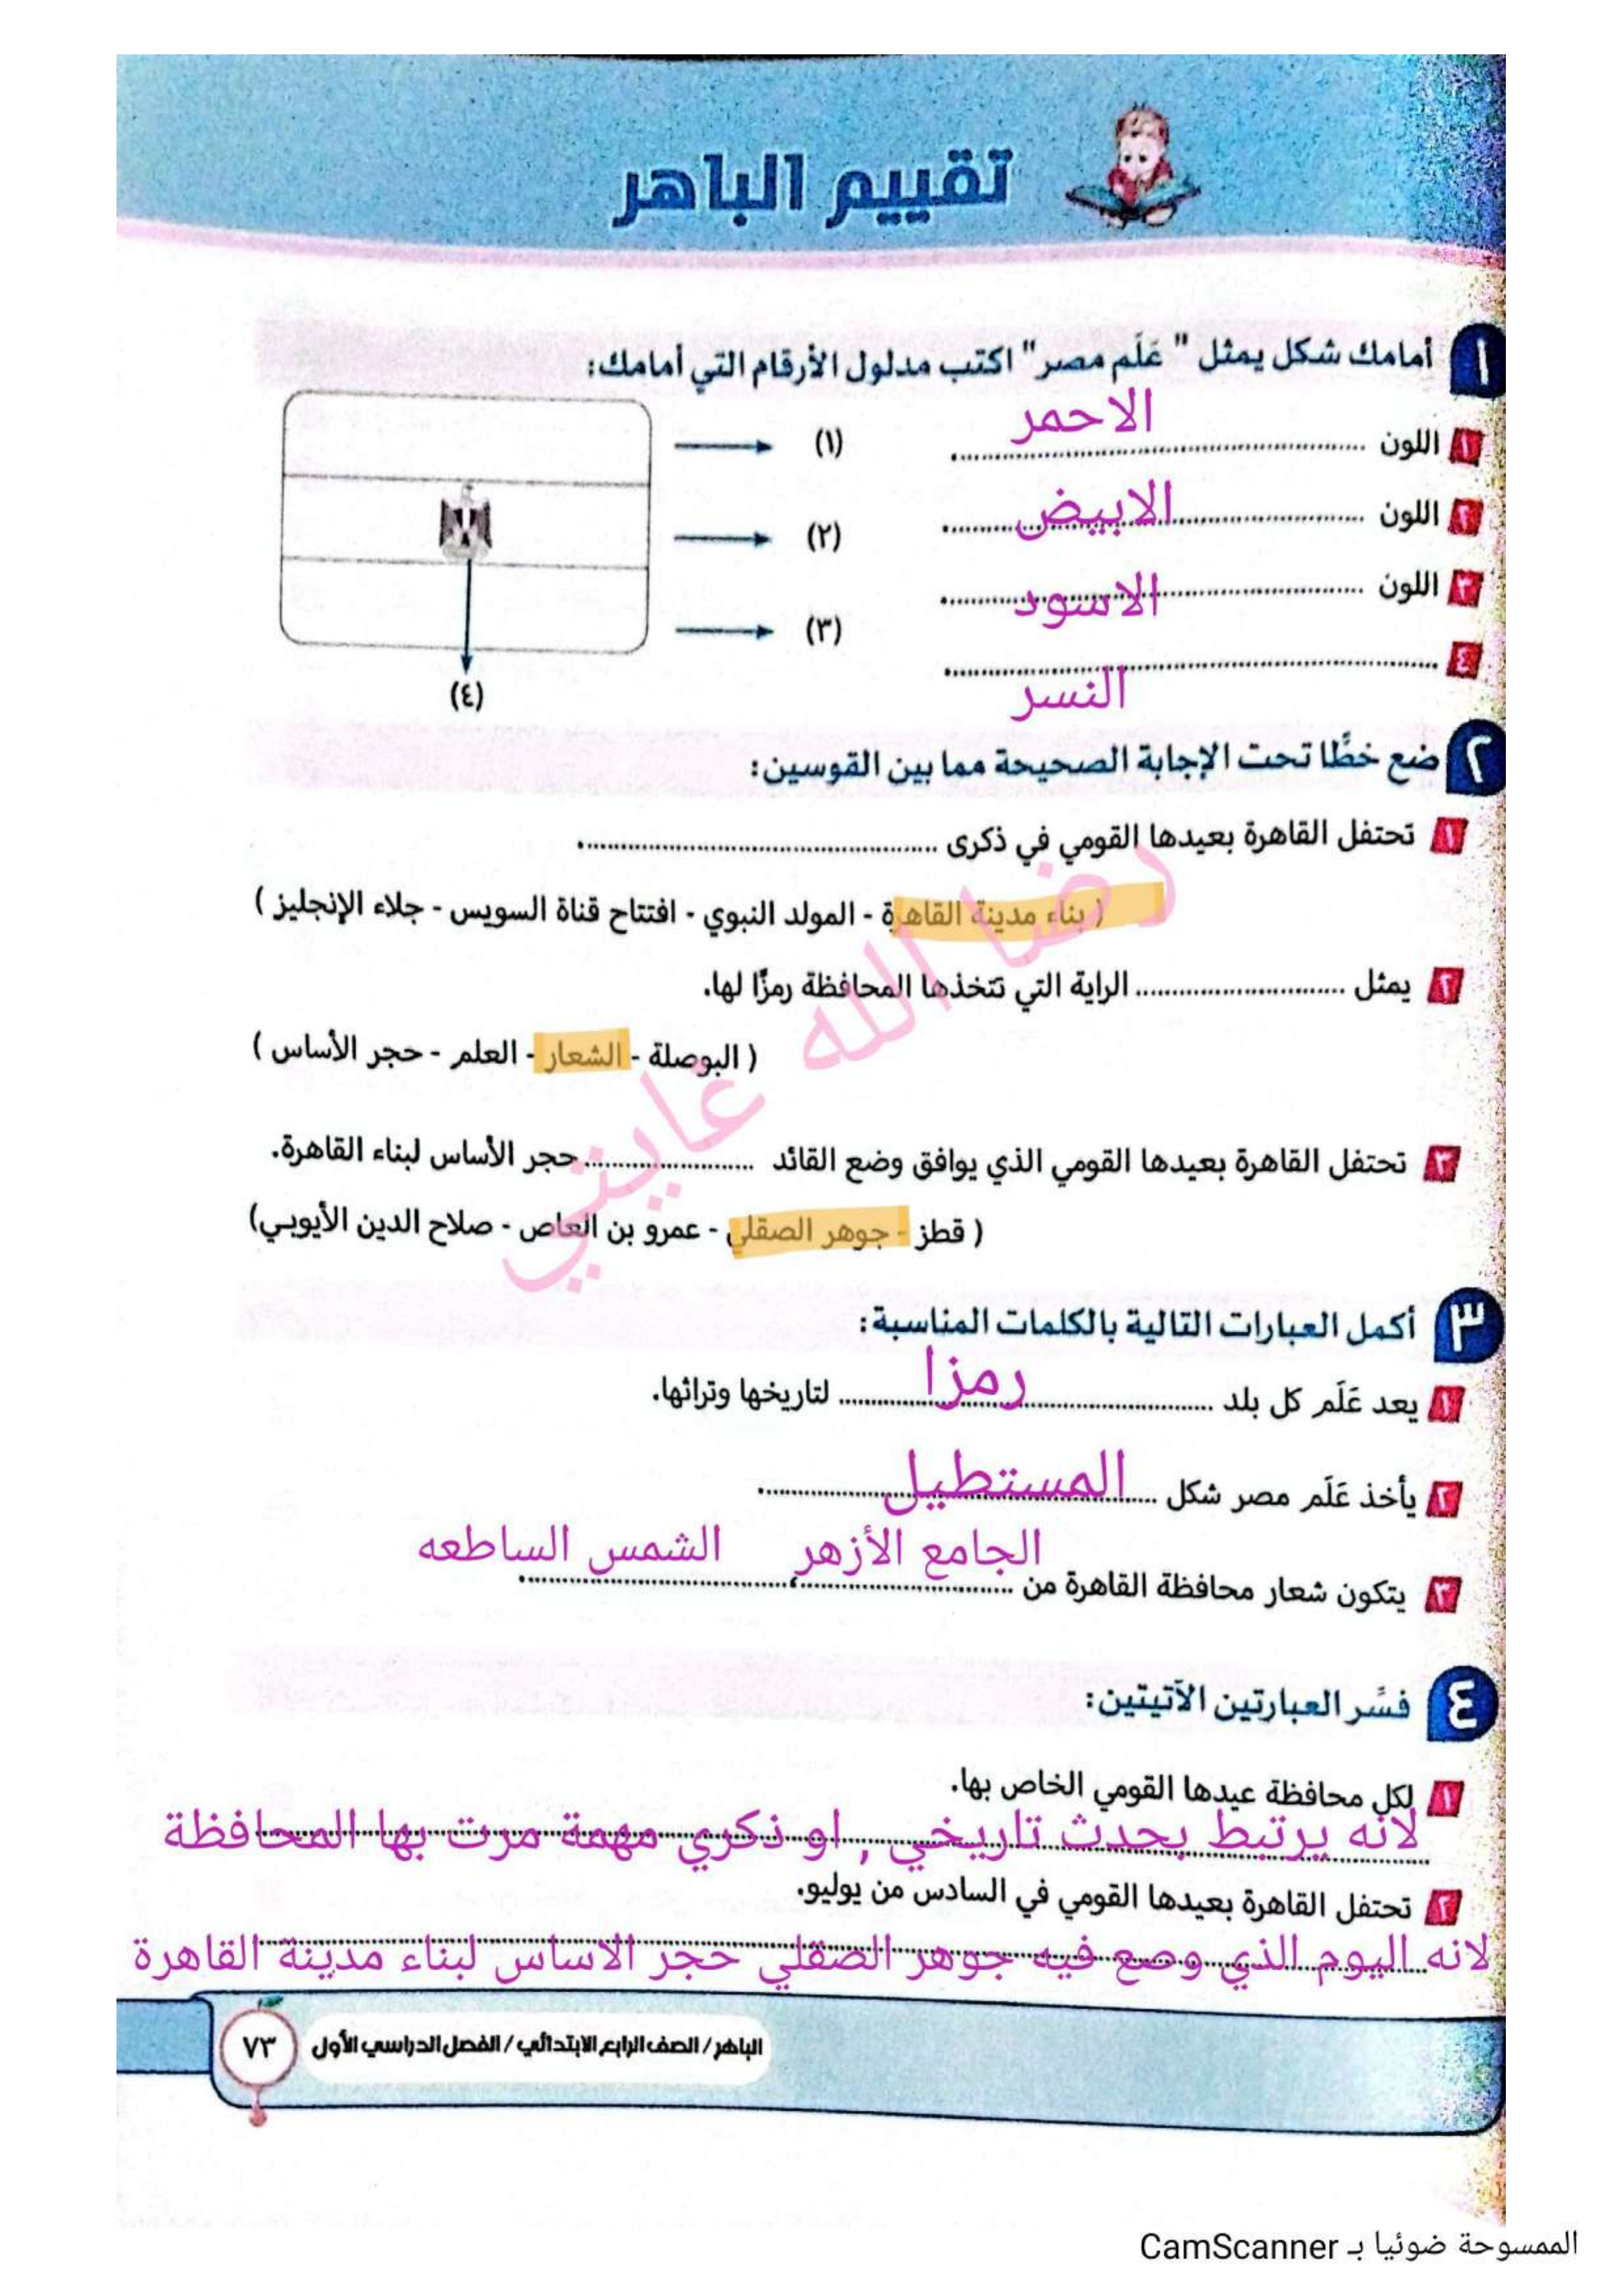 تقييم الباهر
١ أمامك شكل يمثل " عَلَم مصر" اكتب مدلول الأرقام التي أمامك:
١ اللون الاحمر (١)
٢ اللون الابيض (٢)
٣ اللون الاسود (٣)
٤ النسر (٤)
٢ ضع خطًّا تحت الإجابة الصحيحة مما بين القوسين:
١ تحتفل القاهرة بعيدها القومي في ذكرى ..............................
( بناء مدينة القاهرة - المولد النبوي - افتتاح قناة السويس - جلاء الإنجليز )
٢ يمثل .............................. الراية التي تتخذها المحافظة رمزًا لها.
( البوصلة - الشعار - العلم - حجر الأساس )
٣ تحتفل القاهرة بعيدها القومي الذي يوافق وضع القائد .............................. حجر الأساس لبناء القاهرة.
( قطز - جوهر الصقلي - عمرو بن العاص - صلاح الدين الأيوبي)
رضا الله غايتي
٣ أكمل العبارات التالية بالكلمات المناسبة:
١ يعد عَلَم كل بلد رمزا لتاريخها وتراثها.
٢ يأخذ عَلَم مصر شكل المستطيل.
٣ يتكون شعار محافظة القاهرة من الجامع الأزهر ، الشمس الساطعه.
٤ فسَّر العبارتين الآتيتين:
١ لكل محافظة عيدها القومي الخاص بها.
لانه يرتبط بحدث تاريخي , او ذكري مهمة مرت بها المحافظة
٢ تحتفل القاهرة بعيدها القومي في السادس من يوليو.
لانه اليوم الذي وضع فيه جوهر الصقلي حجر الاساس لبناء مدينة القاهرة
الباهر / الصف الرابع الابتدائي / الفصل الدراسي الأول ٧٣
الممسوحة ضوئيا بـ CamScanner